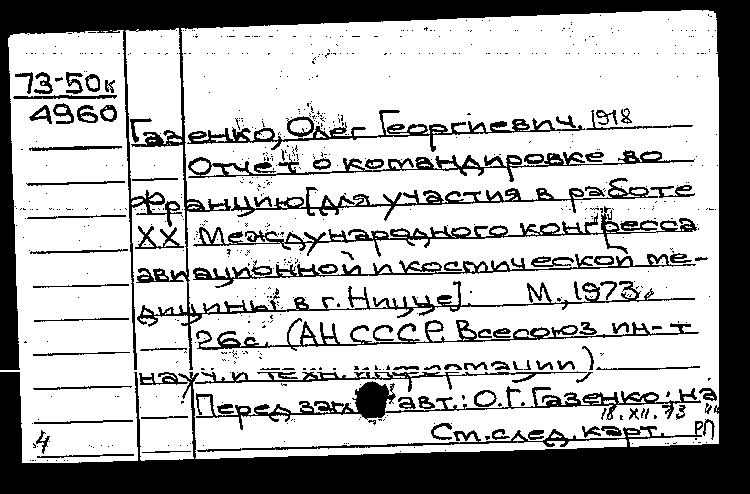 73-50к
4960
Газенко, Олег Георгиевич. 1918
Отчет о командировке во
Францию [для участия в работе
XX Международного конгресса
авиационной и космической ме-
дицины в г. Ницце]. М., 1973.
26с. (АН СССР. Всесоюз. ин-т
науч. и техн. информации).
Перед загл. авт.: О.Г. Газенко; на
18.XII.73
4 См. след. карт. РП